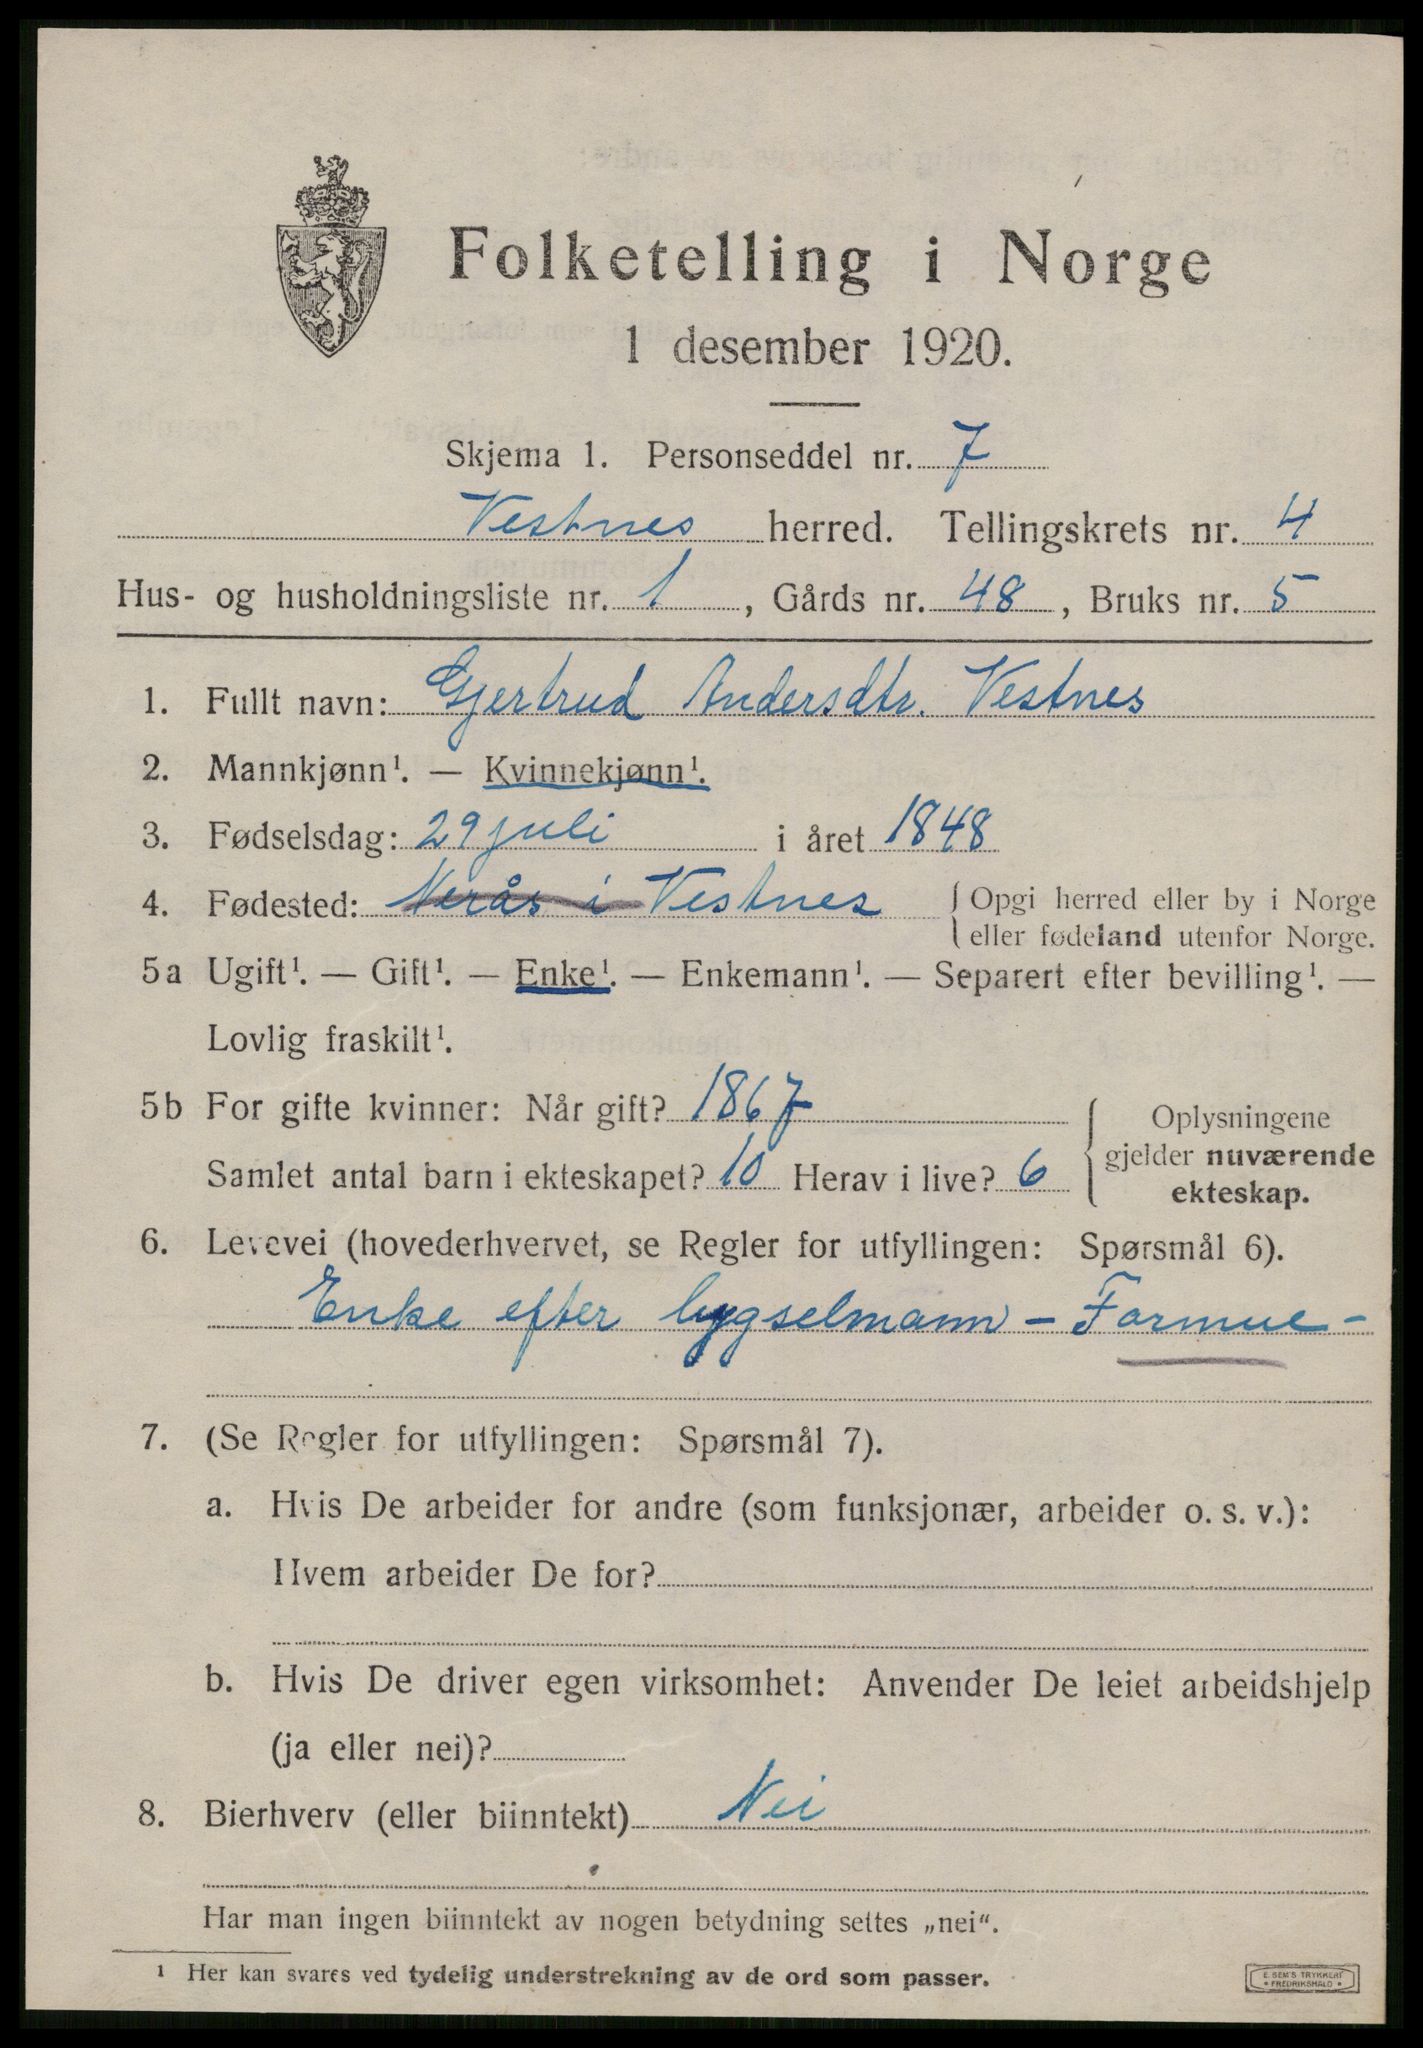 Folketelling i Norge
1 desember 1920.
Skjema 1. Personseddel nr. 7
Vestnes herred. Tellingskrets nr. 4
Hus- og husholdningsliste nr. 1, Gårds nr. 48, Bruks nr. 5
1. Fullt navn: Gjertrud Andersdtr. Vestnes
2. Mannkjønn¹. — Kvinnekjønn¹.
3. Fødselsdag: 29 juli i året 1848
4. Fødested: Nerås i Vestnes { Opgi herred eller by i Norge
eller fødeland utenfor Norge.
5a Ugift¹. — Gift¹. — Enke¹. — Enkemann¹. — Separert efter bevilling¹. —
Lovlig fraskilt¹.
5b For gifte kvinner: Når gift? 1867
Samlet antal barn i ekteskapet? 10 Herav i live? 6
Oplysningene
gjelder nuværende
ekteskap.
6. Levevei (hovederhvervet, se Regler for utfyllingen: Spørsmål 6).
Enke efter bygselmann - Formue -
7. (Se Regler for utfyllingen: Spørsmål 7).
a. Hvis De arbeider for andre (som funksjonær, arbeider o. s. v.):
Hvem arbeider De for?
b. Hvis De driver egen virksomhet: Anvender De leiet arbeidshjelp
(ja eller nei)?
8. Bierhverv (eller biinntekt) Nei
Har man ingen biinntekt av nogen betydning settes „nei“.
¹ Her kan svares ved tydelig understrekning av de ord som passer.
E. SEM'S TRYKKERI
• FREDRIKSHALD •